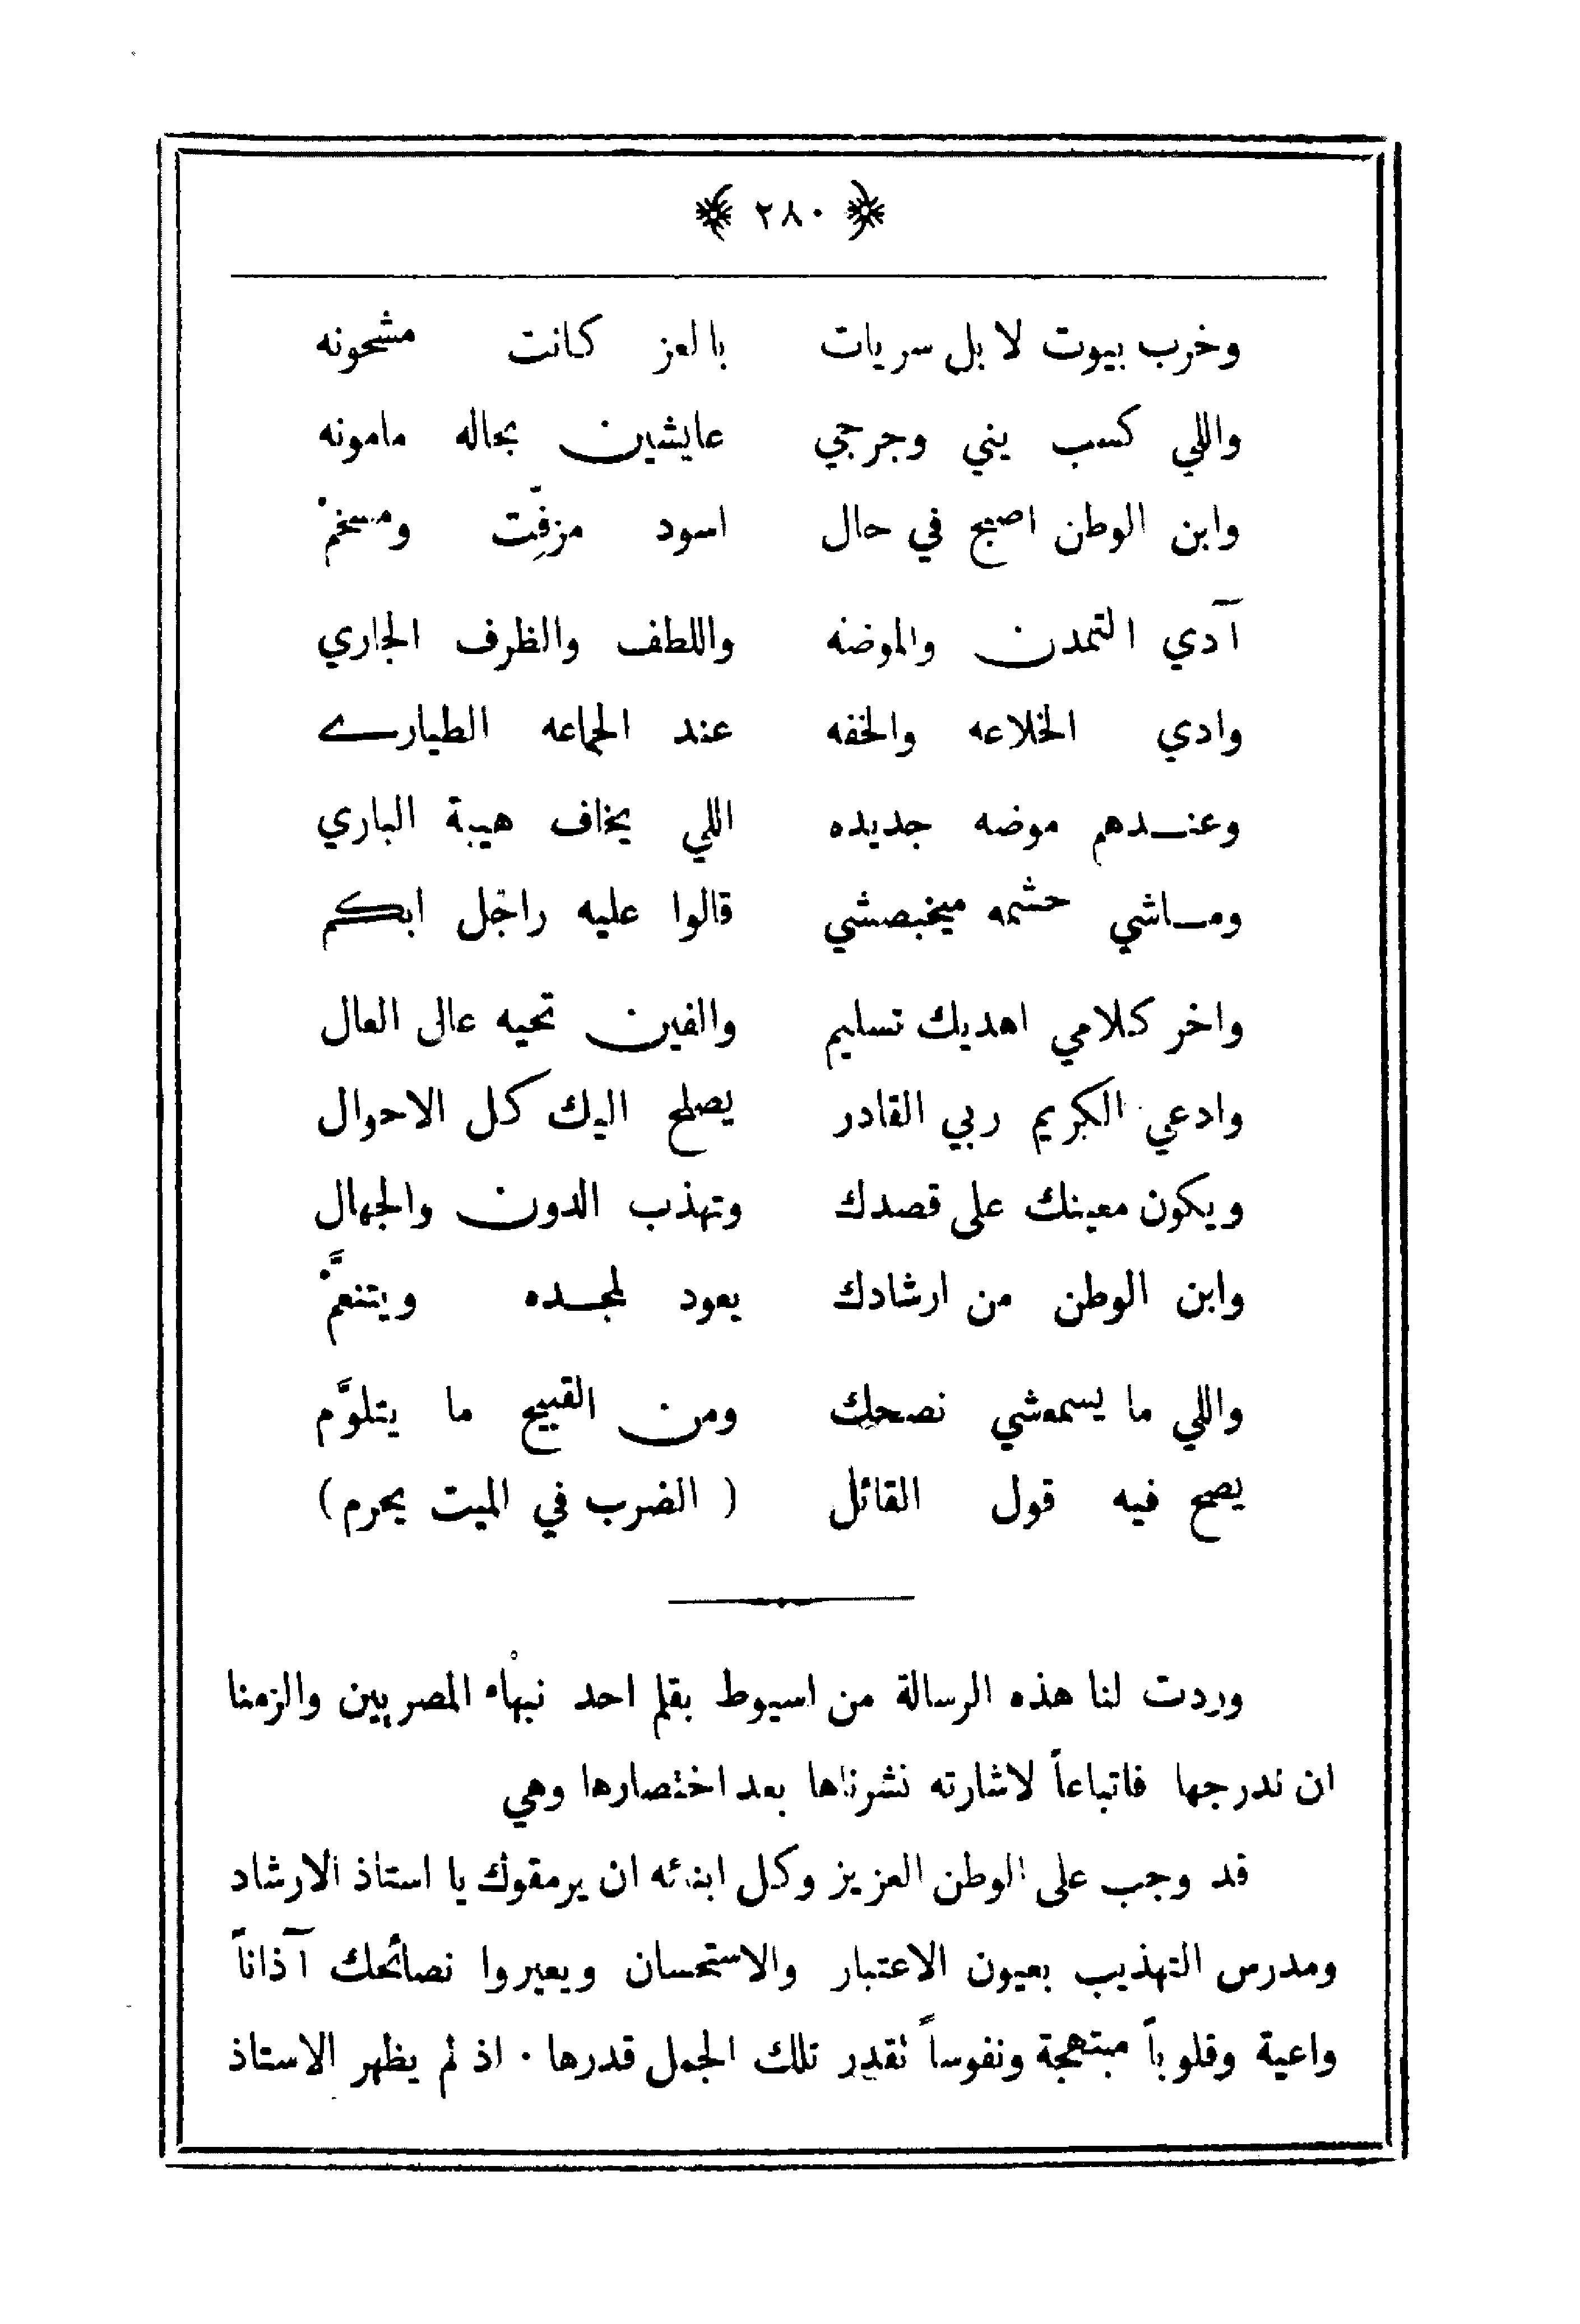 ٢٨٠
وخرب بيوت لا بل سريات بالعز كانت مشحونه
واللي كسب يني وجرجي عايشين بحاله مامونه
وابن الوطن اصبح في حال اسود مزفِّت ومسخم
آدي التمدن والموضه واللطف والظرف الجاري
وادي الخلاعه والخفه عند الجماعه الطياري
وعندهم موضه جديده اللي يخاف هيبة الباري
وماشي حشمه ميخبصشي قالوا عليه راجل ابكم
واخر كلامي اهديك تسليم والفين تحيه عالى العال
وادعي الكريم ربي القادر يصلح اليك كل الاحوال
ويكون معينك على قصدك وتهذب الدون والجهال
وابن الوطن من ارشادك يعود لمجده ويتنعَّم
واللي ما يسمعشي نصحك ومن القبيح ما يتلوَّم
يصح فيه قول القائل ( الضرب في الميت يحرم)
وردت لنا هذه الرسالة من اسيوط بقلم احد نبهاء المصريين والزمنا
ان ندرجها فاتباعاً لاشارته نشرناها بعد اختصارها وهي
قد وجب على الوطن العزيز وكل ابنائه ان يرمقوك يا استاذ الارشاد
ومدرس التهذيب بعيون الاعتبار والاستحسان ويعيروا نصائحك آذاناً
واعية وقلوباً مبتهجة ونفوساً تقدر تلك الجمل قدرها . اذ لم يظهر الاستاذ